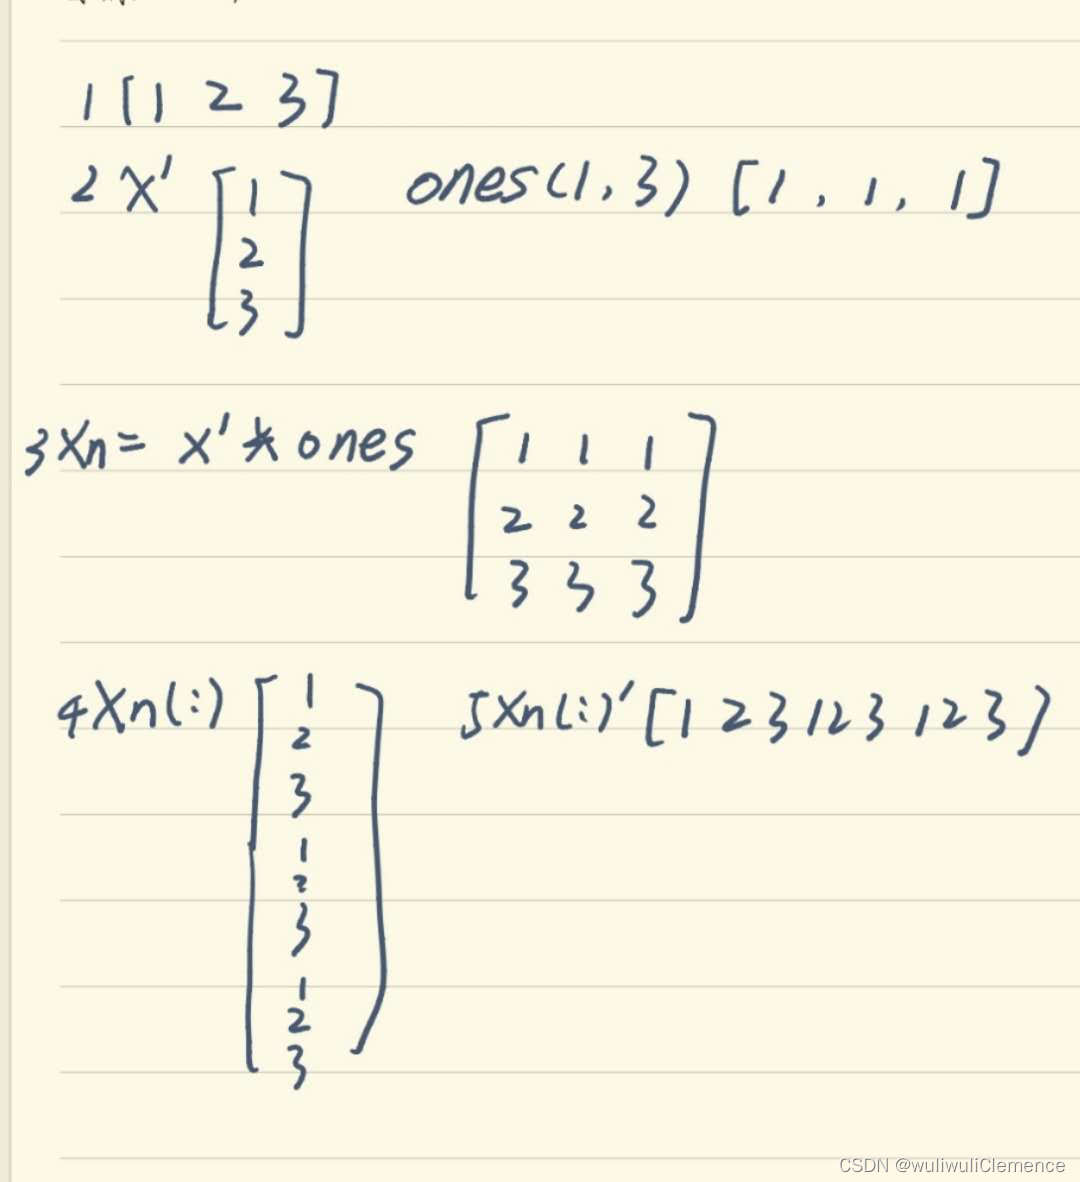 1 [1 2 3]
2 X' [1 2 3] ones(1, 3) [1, 1, 1]
3 Xn = X' * ones [1 1 1
2 2 2
3 3 3]
4 Xn(:) [1 2 3 1 2 3 1 2 3]
5 Xn(:)' [1 2 3 1 2 3 1 2 3]
CSDN @wuliwuliClemence